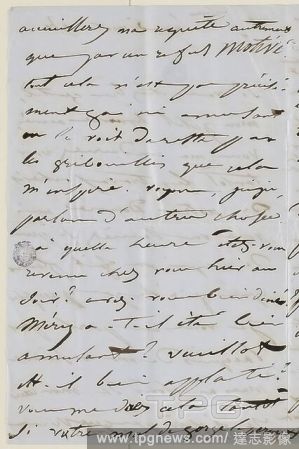 accueillerez ma requête autrement
que par un refus motivé
tout cela n'est pas précisé-
ment gai ni amusant
on le voit du reste par
les gribouillis que cela
m'inspire. voyons, 
parlons d'autre chose
à quelle heure êtes-vous
revenue chez vous hier au
soir? avez-vous bien dîné?
Méry a-t-il été bien
amusant? 
-il bien applaudi?
vous me direz cela tantôt
si votre mal de gorge
TPG
www.tpgnews.com/ 達志影像